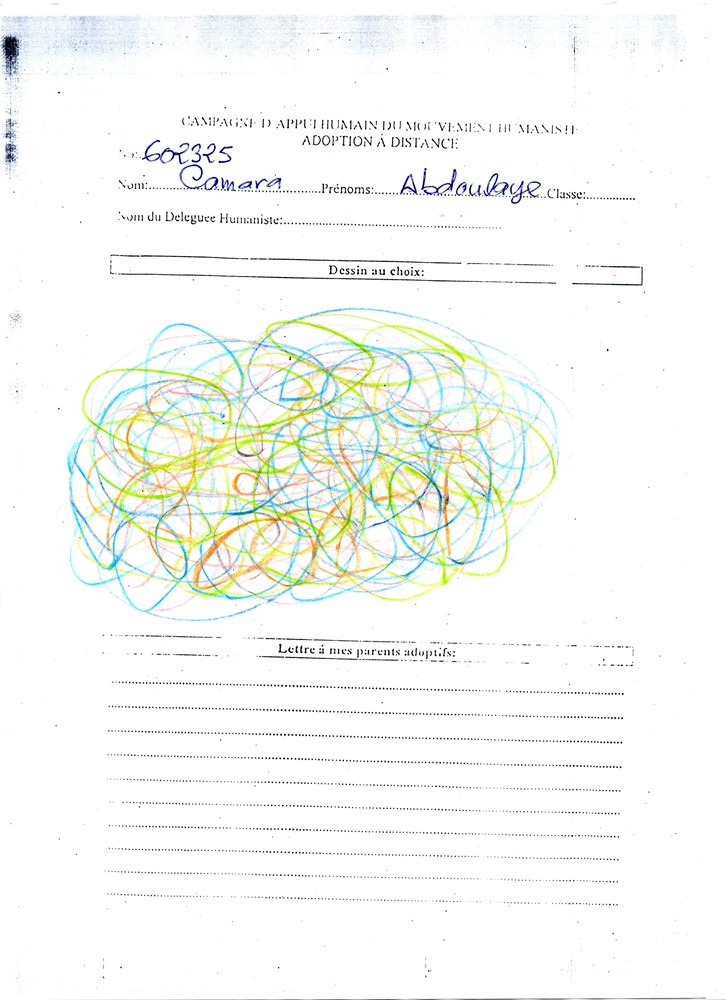 CAMPAGNE D'APPUI HUMAIN DU MOUVEMENT HUMANISTE
ADOPTION À DISTANCE
No: 602325
Nom: Camara Prénoms: Abdoulaye Classe:
Nom du Deleguee Humaniste:
Dessin au choix:
Lettre á mes parents adoptifs: